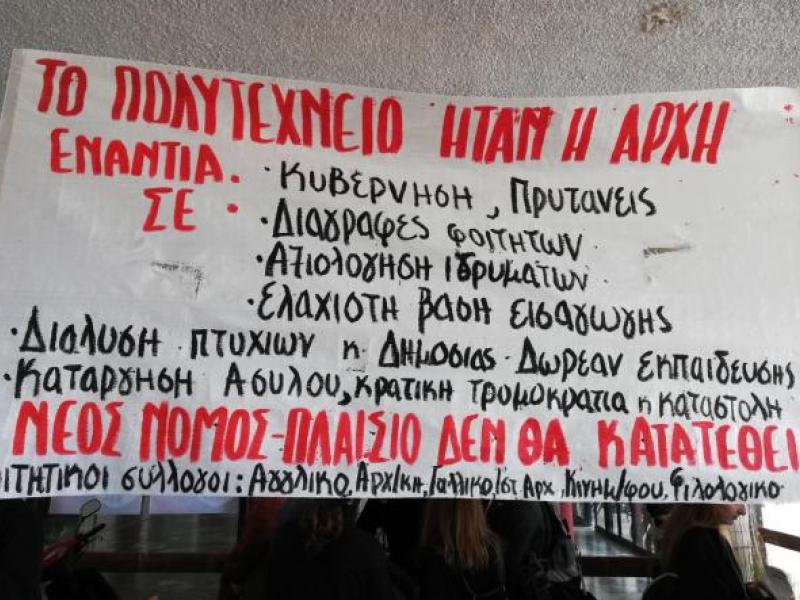 ΤΟ ΠΟΛΥΤΕΧΝΕΙΟ ΗΤΑΝ Η ΑΡΧΗ
ΕΝΑΝΤΙΑ ΣΕ :
· Κυβέρνηση, Πρυτάνεις
· Διαγραφές φοιτητών
· Αξιολόγηση ιδρυμάτων
· Ελάχιστη βάση εισαγωγής
· Διάλυση πτυχίων κ Δημόσιας - Δωρεάν εκπαίδευσης
· Κατάργηση Ασύλου, κρατική τρομοκρατία κ καταστολή
ΝΕΟΣ ΝΟΜΟΣ-ΠΛΑΙΣΙΟ ΔΕΝ ΘΑ ΚΑΤΑΤΕΘΕΙ
ΙΤΗΤΙΚΟΙ ΣΥΛΛΟΓΟΙ: Αγγλικό, Αρχ/κη, Γαλλικό, Ιστ Αρχ, Κινημ/φου, Φιλολογικό